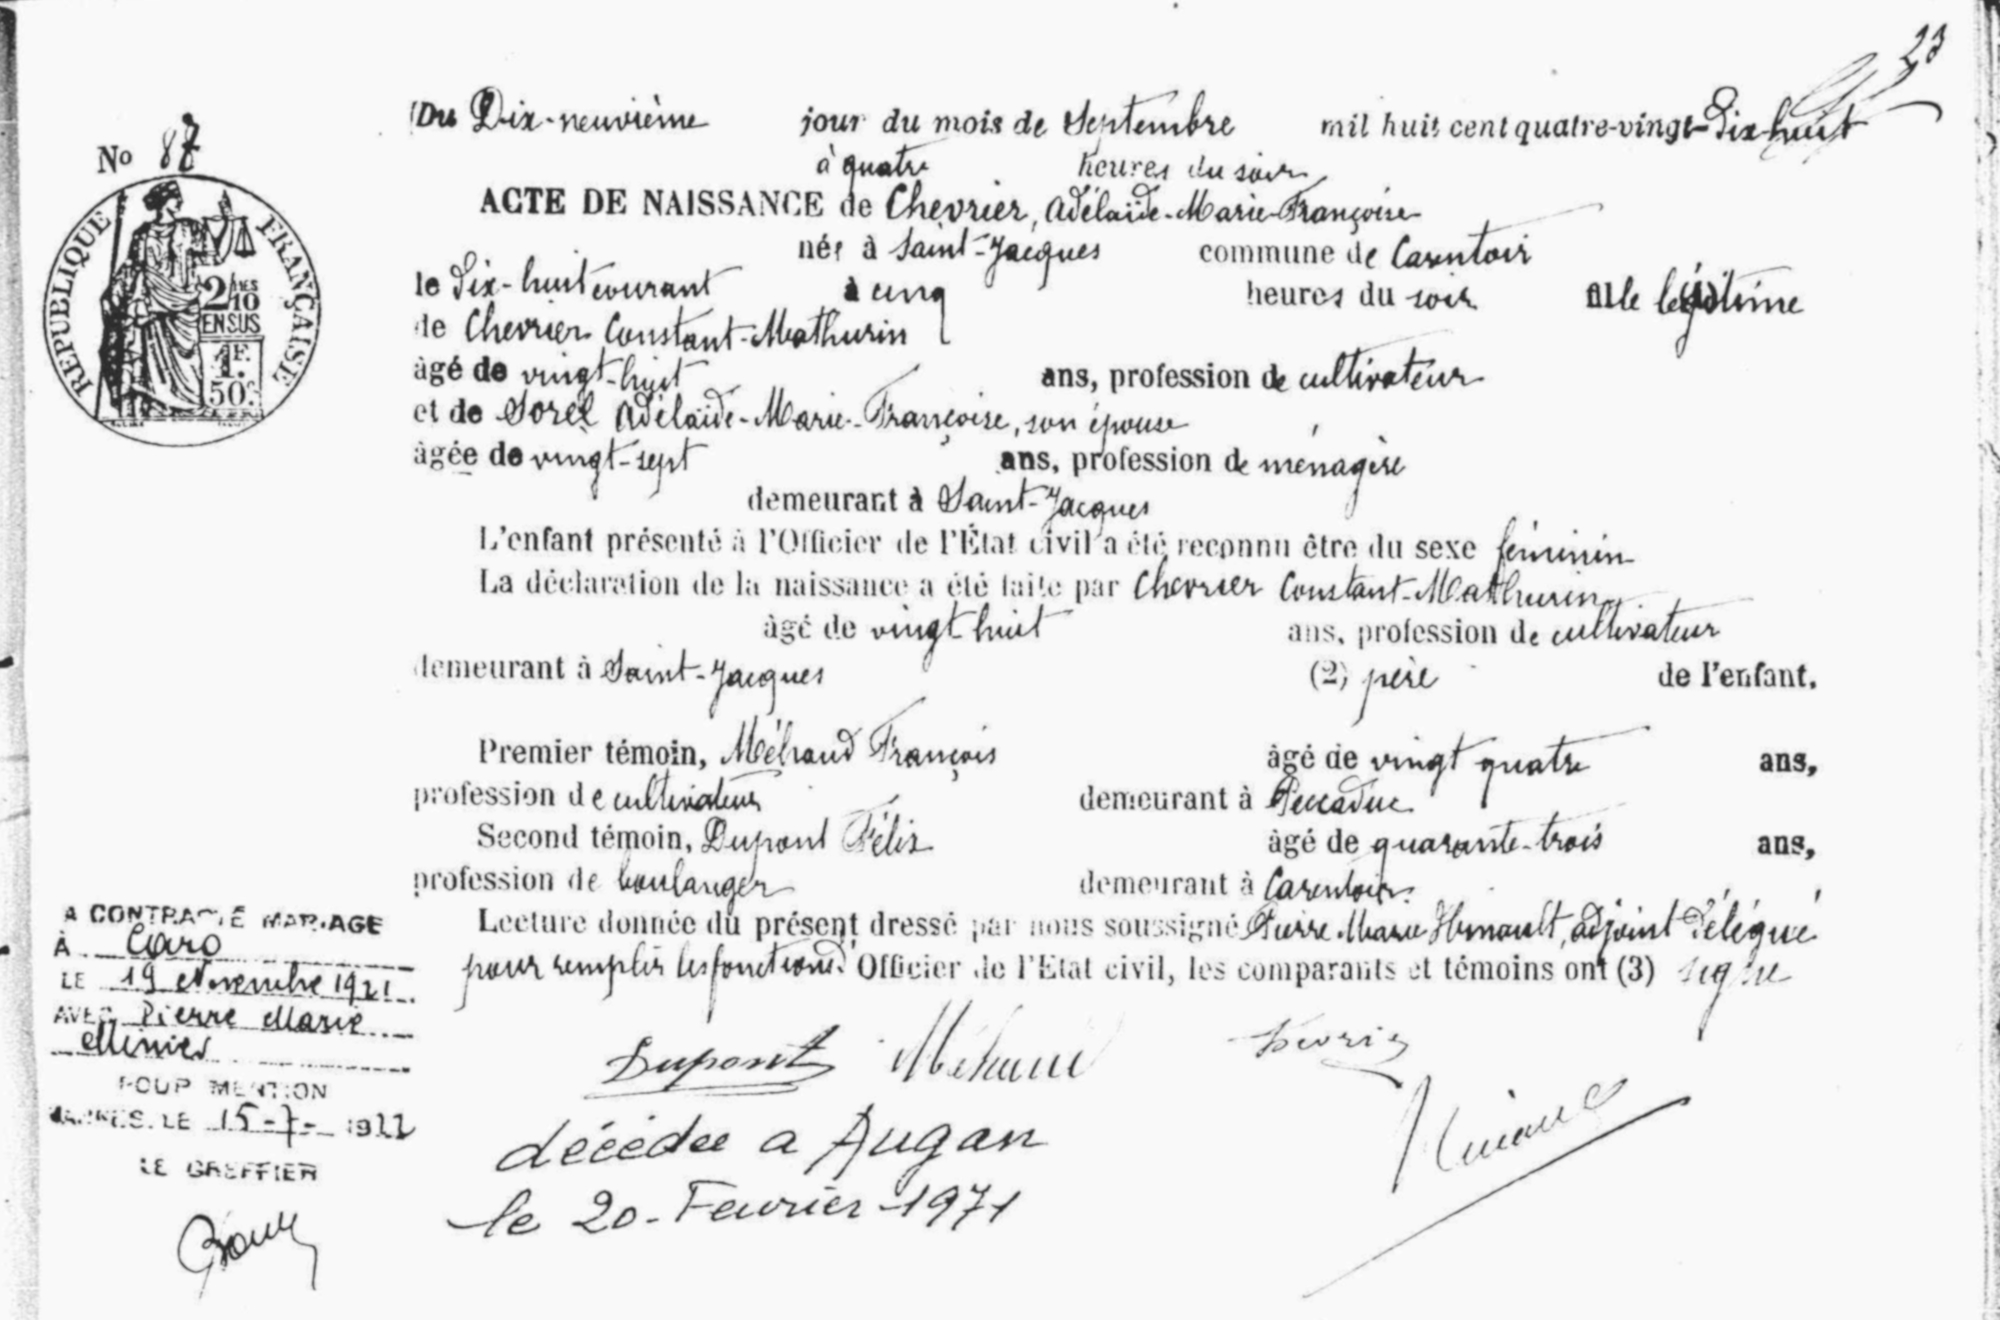 23
Du Dix-neuvième jour du mois de Septembre mil huit cent quatre-vingt-Dix-huit
No 87
à quatre heures du soir
ACTE DE NAISSANCE de Chevrier, Adélaïde-Marie-Françoise
née à Saint-Jacques commune de Carentoir
le Dix-huit courant à cinq heures du soir fille légitime
de Chevrier Constant-Mathurin
âgé de vingt-huit ans, profession de cultivateur
et de Sorel Adélaïde-Marie-Françoise, son épouse
âgée de vingt-sept ans, profession de ménagère
demeurant à Saint-Jacques
L'enfant présenté à l'Officier de l'État civil a été reconnu être du sexe féminin
La déclaration de la naissance a été faite par Chevrier Constant-Mathurin
âgé de vingt huit ans, profession de cultivateur
demeurant à Saint-Jacques (2) père de l'enfant.
Premier témoin, Méhaud François âgé de vingt quatre ans,
profession de cultivateur demeurant à Peccaduc
Second témoin, Dupont Félix âgé de quarante-trois ans,
profession de boulanger demeurant à Carentoir.
Lecture donnée du présent dressé par nous soussigné Pierre Marie Hunault, adjoint Délégué
pour remplir les fonctions d'Officier de l'Etat civil, les comparants et témoins ont (3) signé
Dupont Méhaud
décédée a Augan
le 20-Fevrier-1971
REPUBLIQUE FRANÇAISE
2 MES
10
EN SUS
1F.
50c.
A CONTRACTÉ MARIAGE
À Caro
LE 19 Novembre 1921
AVEC Pierre Marie
Minier
POUR MENTION
VANNES. LE 15-7-1922
LE GREFFIER